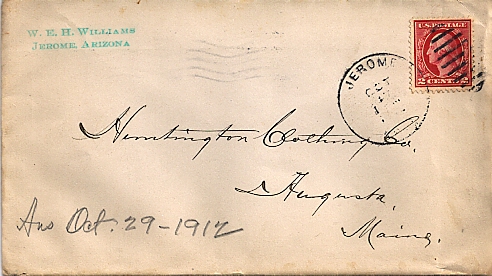 W. E. H. WILLIAMS
JEROME, ARIZONA
U.S. POSTAGE
2 CENTS 2
JEROME
OCT
Huntington Clothing Co.
Augusta,
Maine.
Ans Oct. 29-1912